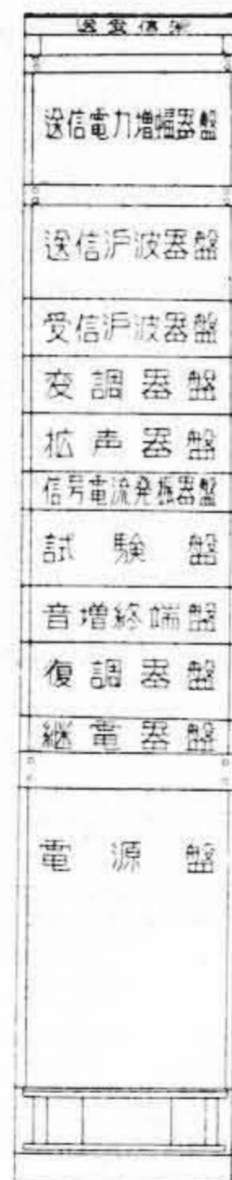 送受信架
送信電力増幅器盤
送信沪波器盤
受信沪波器盤
変調器盤
拡声器盤
信号電流発振器盤
試験盤
音増終端盤
復調器盤
継電器盤
電源盤